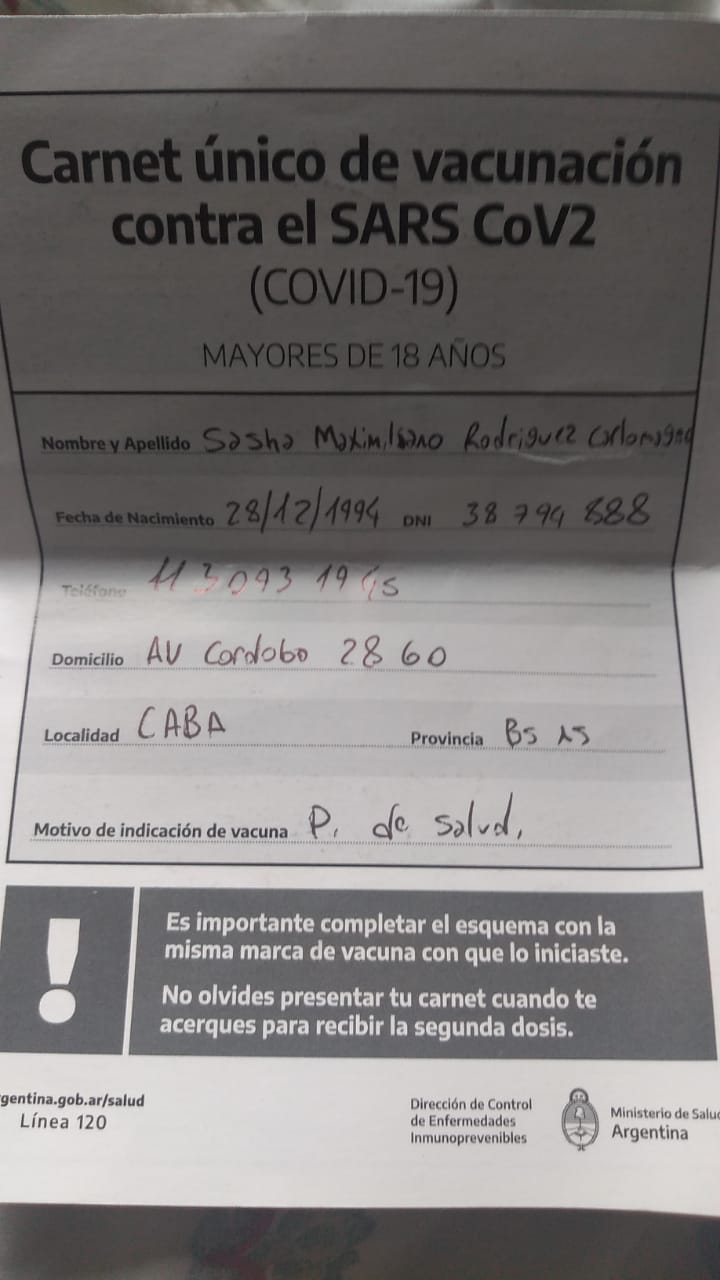 Carnet único de vacunación
contra el SARS CoV2
(COVID-19)
MAYORES DE 18 AÑOS
Nombre y Apellido Sasha Maximiliano Rodriguez Carlomagno
Fecha de Nacimiento 28/12/1994 DNI 38 794 888
Teléfono 11 3093 19
Domicilio AV Cordoba 2860
Localidad CABA Provincia Bs As
Motivo de indicación de vacuna P. de salud,
!
Es importante completar el esquema con la
misma marca de vacuna con que lo iniciaste.
No olvides presentar tu carnet cuando te
acerques para recibir la segunda dosis.
gentina.gob.ar/salud
Línea 120
Dirección de Control
de Enfermedades
Inmunoprevenibles
Ministerio de Salud
Argentina